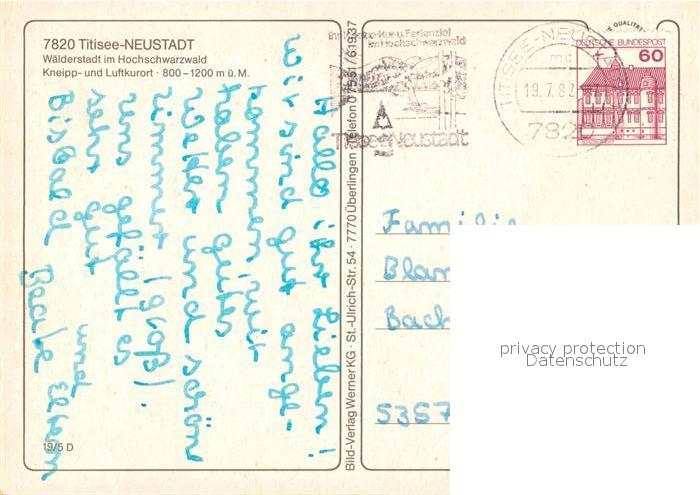 7820 Titisee-NEUSTADT
Wälderstadt im Hochschwarzwald
Kneipp- und Luftkurort · 800–1200 m ü. M.
Hallo ihr Lieben!
Wir sind gut ange-
kommen, wir
haben gutes
Wetter und schöne
zimmer (groß).
uns gefällt es
sehr gut
Bis bald
und Eltern
19/5 D
Bild-Verlag Werner KG · St.-Ulrich-Str. 54 · 7770 Überlingen · Telefon 07551/61937
im Hochschwarzwald
Titisee-Neustadt
TITISEE-NEUSTA
mc
19.7.82
7820
DEUTSCHE BUNDESPOST
60
Familie
Blan
Bach
5357
privacy protection
Datenschutz